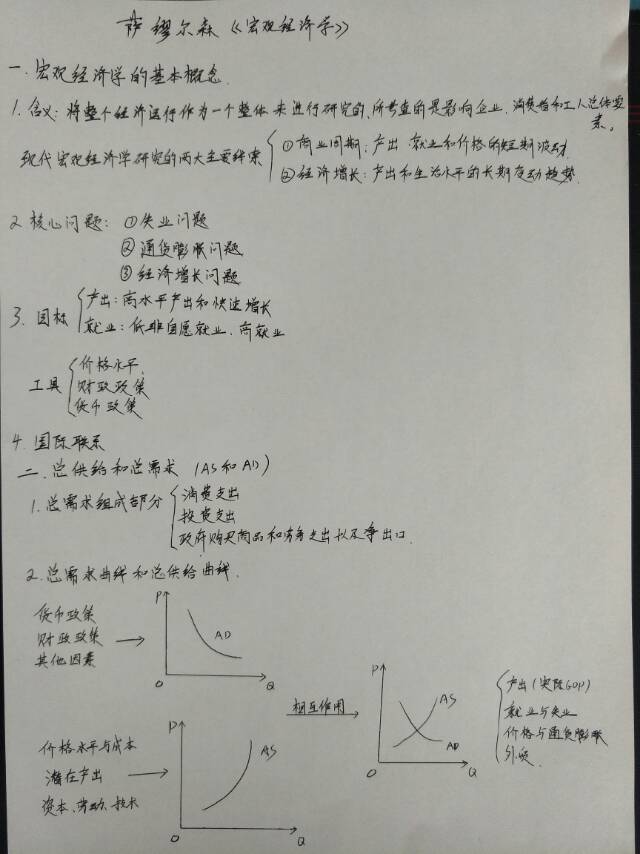 萨缪尔森《宏观经济学》
一.宏观经济学的基本概念.
1.含义:将整个经济运行作为一个整体来进行研究的,所考查的是影响企业.消费者和工人总体要素。
现代宏观经济学研究的两大主要线索
①商业周期:产出.就业和价格的短期波动.
②经济增长:产出和生活水平的长期变动趋势.
2.核心问题:①失业问题
②通货膨胀问题
③经济增长问题
3.目标
产出:高水平产出和快速增长
就业:低非自愿就业.高就业
工具
价格水平.
财政政策
货币政策
4.国际联系
二.总供给和总需求(AS和AD)
1.总需求组成部分
消费支出
投资支出
政府购买商品和劳务支出以及净出口.
2.总需求曲线和总供给曲线.
货币政策
财政政策
其他因素
P
AD
O
Q
价格水平与成本
潜在产出
资本.劳动.技术
P
AS
O
Q
相互作用
P
AS
AD
O
Q
产出(实际GDP)
就业与失业
价格与通货膨胀
外贸.